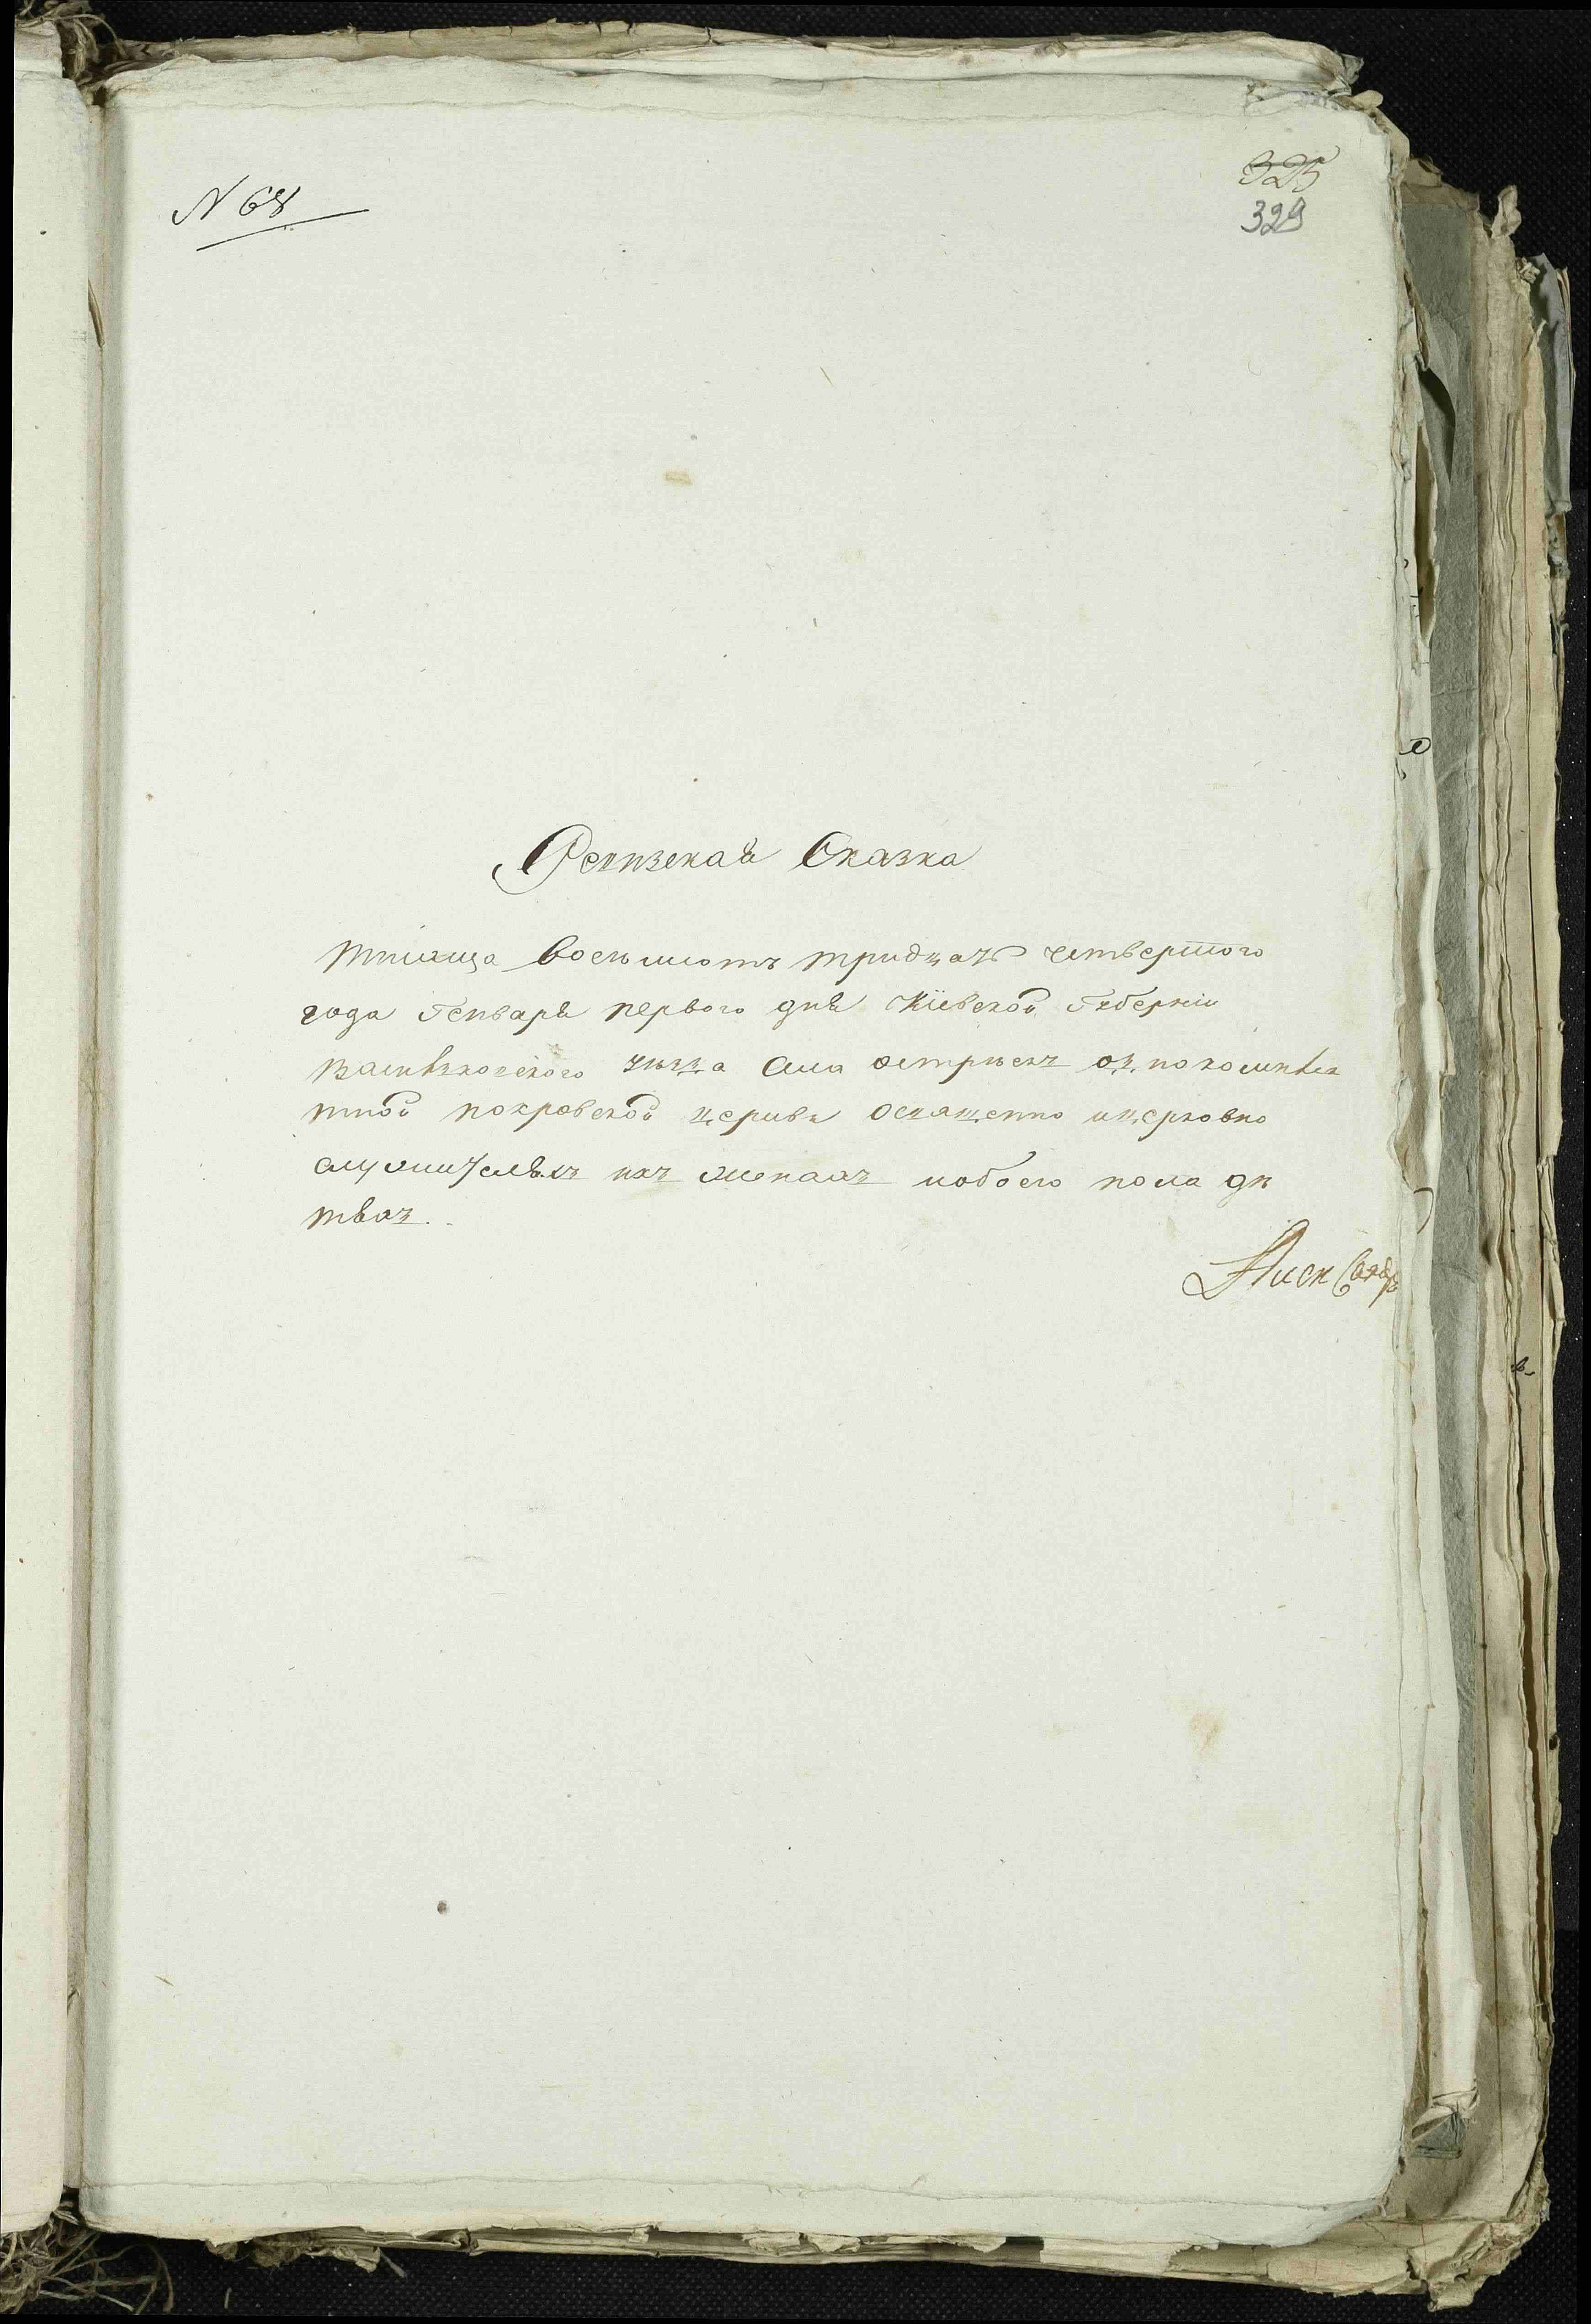 N 68
325
329
Ревизская Сказка
тысяща восемьсотъ тридцать четвертого
года Генваря первого дня Кіевской Губерніи
Васильковского уезда села острыекъ о покомплек
тной покровской церкви освященно ицерковно
служителяхъ ихъ женахъ иобоего пола де
твах.